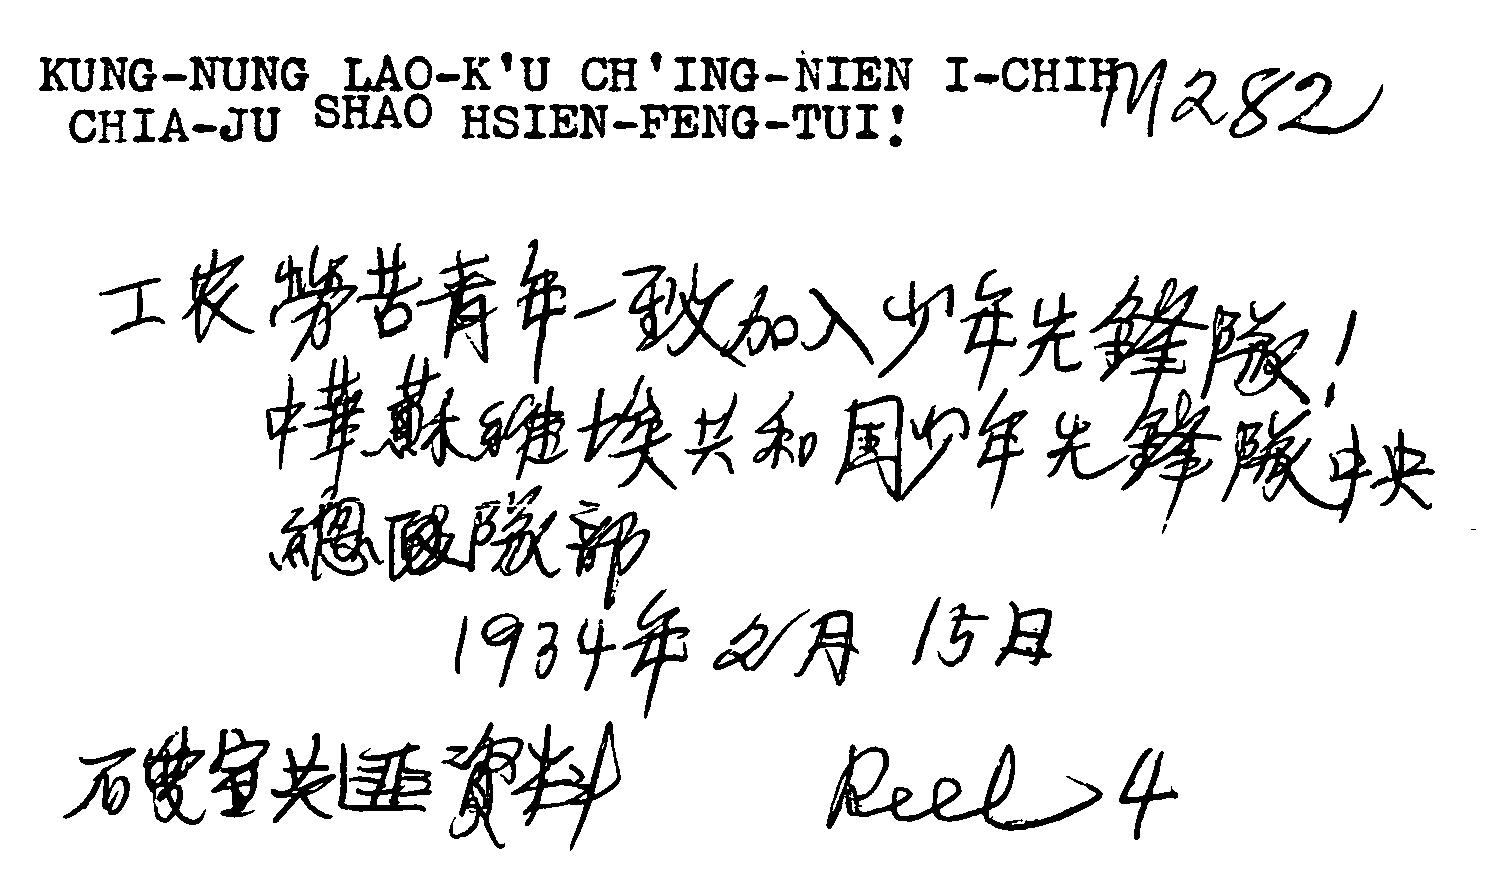 KUNG-NUNG LAO-K'U CH'ING-NIEN I-CHIH M282
CHIA-JU SHAO HSIEN-FENG-TUI!
工农劳苦青年一致加入少年先鋒隊!
中華蘇維埃共和国少年先鋒隊中央
總隊部
1934年2月15日
石叟室共匪資料 Reel 4